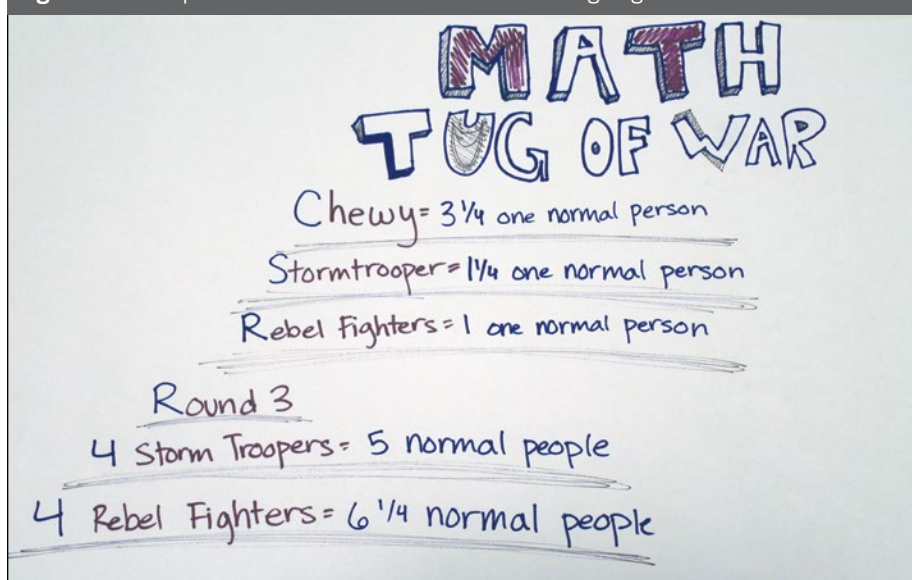 MATH
TUG OF WAR
Chewy= 3 1/4 one normal person
Stormtrooper= 1 1/4 one normal person
Rebel Fighters= 1 one normal person
Round 3
4 Storm Troopers= 5 normal people
4 Rebel Fighters= 6 1/4 normal people